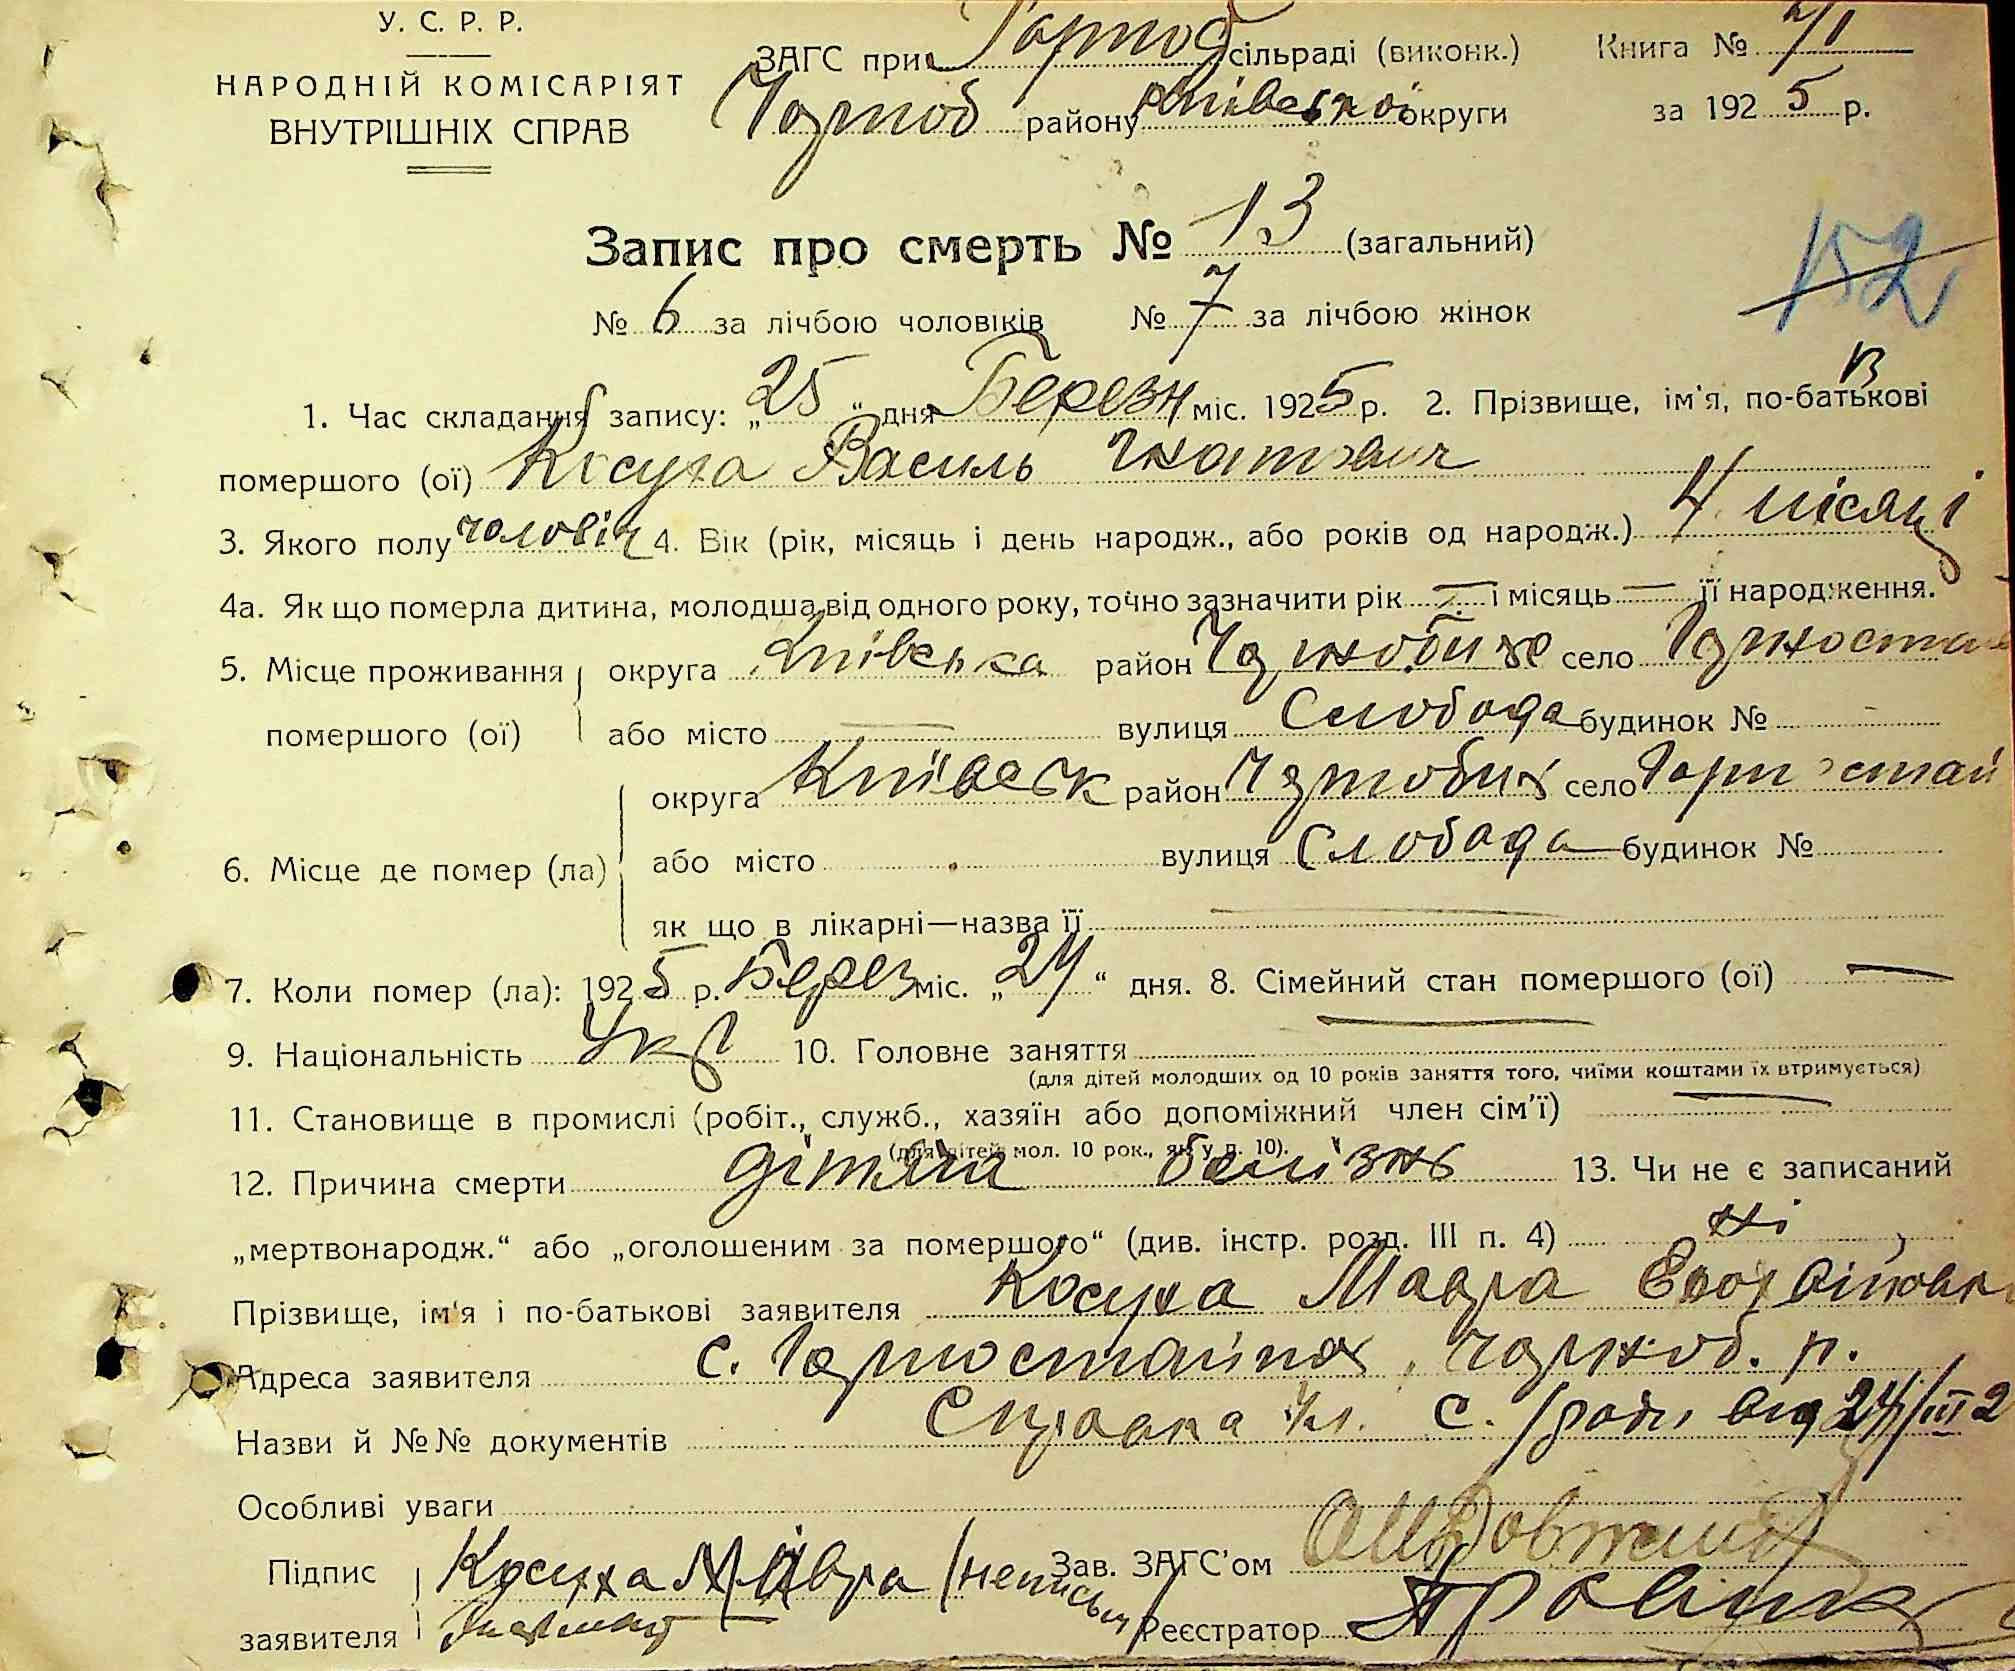 У. С. Р. Р.
НАРОДНІЙ КОМІСАРІЯТ
ВНУТРІШНІХ СПРАВ
ЗАГС при Горност сільраді (виконк.) Книга №
Чорноб району Київської округи за 1925 р.
152
Запис про смерть № 13 (загальний)
№ 6 за лічбою чоловіків № 7 за лічбою жінок
1. Час складання запису: „25“ дня Березн міс. 1925 р. 2. Прізвище, ім'я, по-батькові
помершого (ої) Косуха Василь Гнатович
3. Якого полу чоловіч 4. Вік (рік, місяць і день народж., або років од народж.) 4 місяці
4а. Як що померла дитина, молодша від одного року, точно зазначити рік — і місяць — її народження.
5. Місце проживання помершого (ої) округа Київська район Чорнобиль село Горностай
або місто — вулиця Слобода будинок №
6. Місце де помер (ла) округа Київськ район Чорнобил село Горностай
або місто вулиця Слобода будинок №
як що в лікарні—назва її —
7. Коли помер (ла): 1925 р. Берез міс. „24“ дня. 8. Сімейний стан помершого (ої) —
9. Національність Укр 10. Головне заняття —
(для дітей молодших од 10 років заняття того, чиїми коштами їх втримується)
11. Становище в промислі (робіт., служб., хазяїн або допоміжний член сім'ї) —
(для дітей мол. 10 рок., як у п. 10).
12. Причина смерти дітяча болізнь 13. Чи не є записаний
„мертвонародж.“ або „оголошеним за помершого“ (див. інстр. розд. III п. 4) ні
Прізвище, ім'я і по-батькові заявителя Косуха Мавра
Адреса заявителя с. Горностайпол, Чорноб. р.
Назви й №№ документів Справка с. ради від 24/III 2
Особливі уваги
Підпис заявителя Косуха Мавра /неписьм/ Зав. ЗАГС'ом
Реєстратор